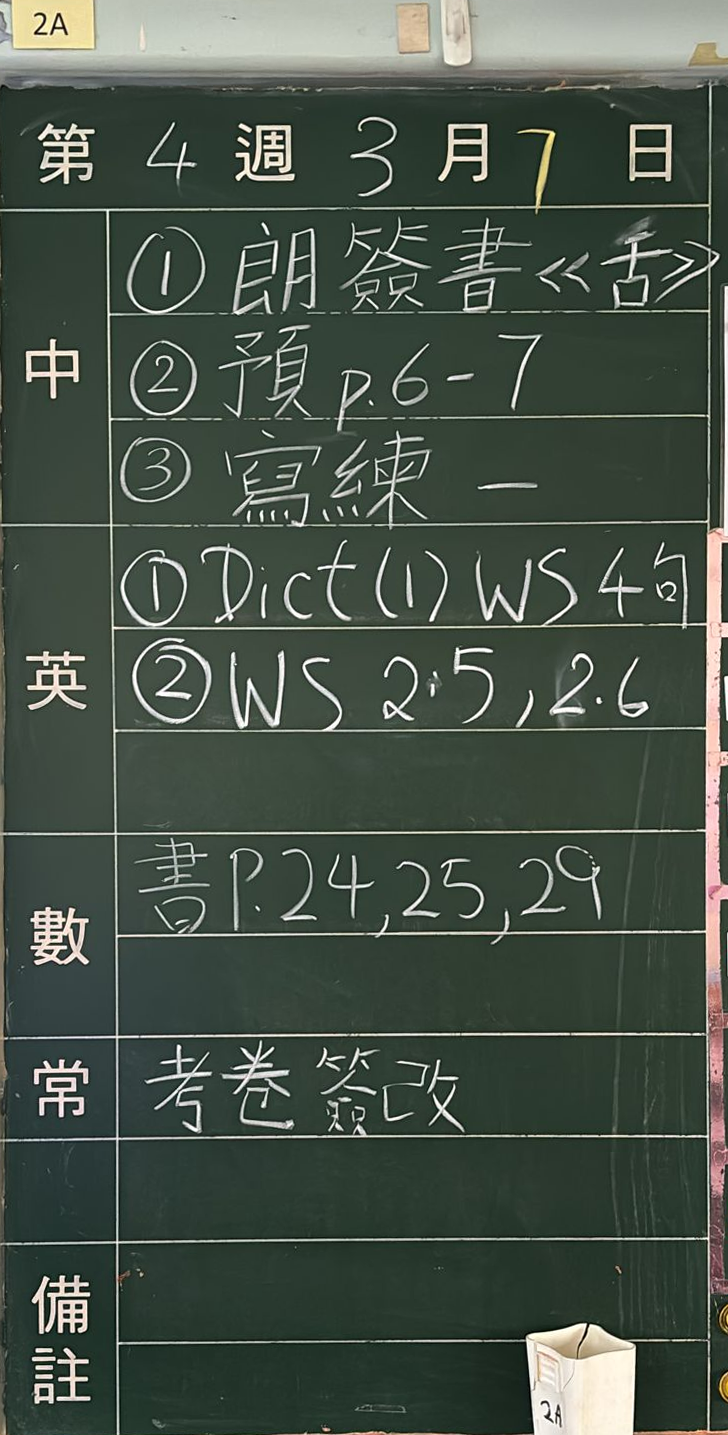 2A
第 4 週 3 月 7 日
中
① 朗簽書《舌》
② 預 p.6-7
③ 寫練 一
英
① Dict(1) WS 4句
② WS 2.5, 2.6
數
書P.24, 25, 29
常
考卷簽改
備註
2A